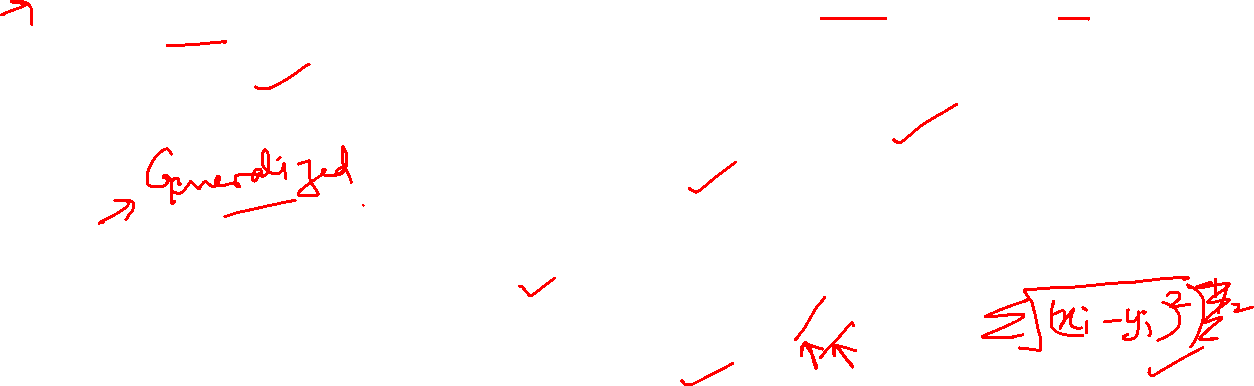 Generalized
Σ√(xi - yi)²